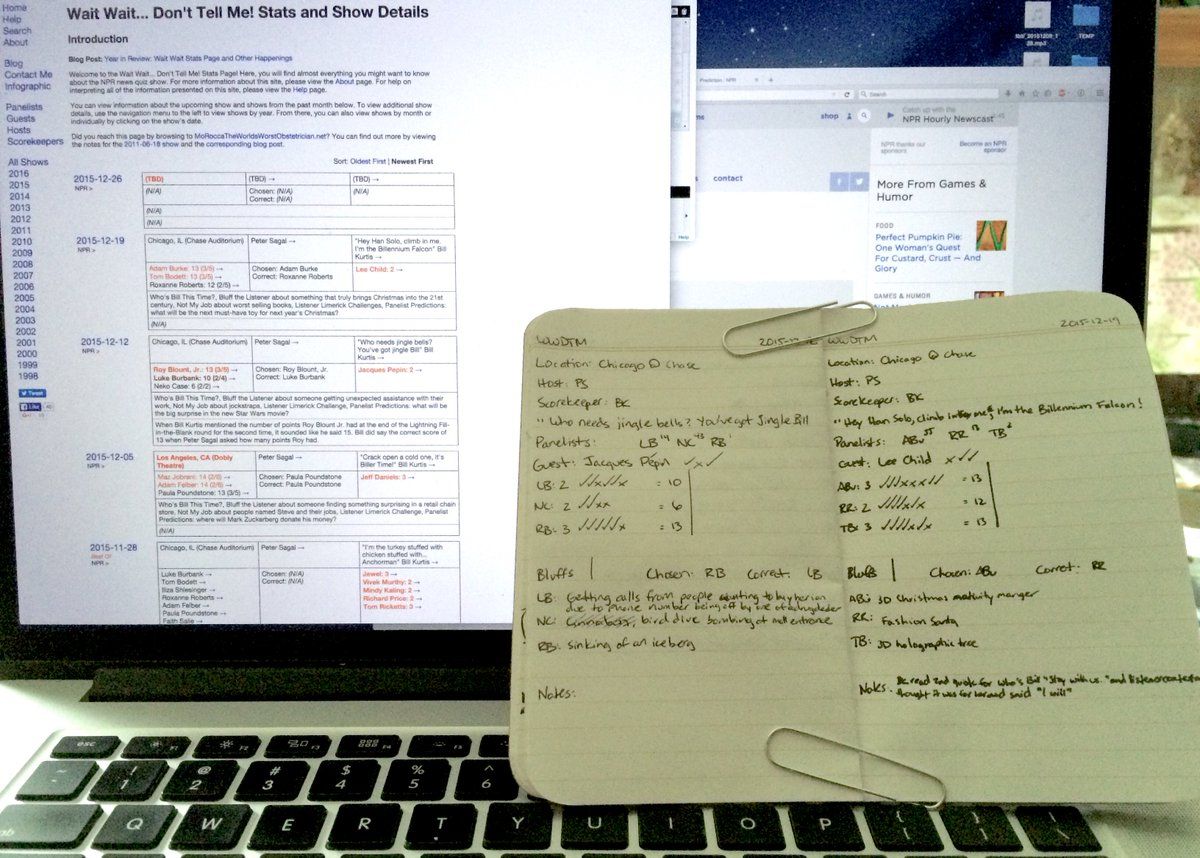 Home
Help
Search
About
Blog
Contact Me
Infographic
Panelists
Guests
Hosts
Scorekeepers
All Shows
2016
2015
2014
2013
2012
2011
2010
2009
2008
2007
2006
2005
2004
2003
2002
2001
2000
1999
1998
Tweet
Like
Wait Wait... Don't Tell Me! Stats and Show Details
Introduction
Blog Post: Year in Review: Wait Wait Stats Page and Other Happenings
Welcome to the Wait Wait... Don't Tell Me! Stats Page! Here, you will find almost everything you might want to know
about the NPR news quiz show. For more information about this site, please view the About page. For help on
interpreting all of the information presented on this site, please view the Help page.
You can view information about the upcoming show and shows from the past month below. To view additional
details, use the navigation menu to the left to view shows by year. From there, you can also view shows by month or
individually by clicking on the show's date.
Did you reach this page by browsing to MoRoccaTheWorldsWorstObstetrician.net? You can find out more by viewing
the notes for the 2011-06-18 show and the corresponding blog post.
Sort: Oldest First | Newest First
2015-12-26
NPR >
(TBD)
(TBD) →
(TBD) →
(N/A)
Chosen: (N/A)
Correct: (N/A)
(N/A)
(N/A)
(N/A)
2015-12-19
NPR >
Chicago, IL (Chase Auditorium)
Peter Sagal →
"Hey Han Solo, climb in me,
I'm the Billennium Falcon" Bill
Kurtis →
Adam Burke: 13 (3/5) →
Tom Bodett: 13 (3/5) →
Roxanne Roberts: 12 (2/5) →
Chosen: Adam Burke
Correct: Roxanne Roberts
Lee Child: 2 →
Who's Bill This Time?, Bluff the Listener about something that truly brings Christmas into the 21st
century, Not My Job about worst selling books, Listener Limerick Challenges, Panelist Predictions:
what will be the next must-have toy for next year's Christmas?
(N/A)
2015-12-12
NPR >
Chicago, IL (Chase Auditorium)
Peter Sagal →
"Who needs jingle bells?
You've got jingle Bill" Bill
Kurtis →
Roy Blount, Jr.: 13 (3/5) →
Luke Burbank: 10 (2/4) →
Neko Case: 6 (2/2) →
Chosen: Roy Blount, Jr.
Correct: Luke Burbank
Jacques Pepin: 2 →
Who's Bill This Time?, Bluff the Listener about someone getting unexpected assistance with their
work, Not My Job about jockstraps, Listener Limerick Challenge, Panelist Predictions: what will be
the big surprise in the new Star Wars movie?
When Bill Kurtis mentioned the number of points Roy Blount Jr. had at the end of the Lightning Fill-
in-the-Blank round for the second time, it sounded like he said 15. Bill did say the correct score of
13 when Peter Sagal asked how many points Roy had.
2015-12-05
NPR >
Los Angeles, CA (Dobly
Theatre)
Peter Sagal →
"Crack open a cold one, it's
Biller Time!" Bill Kurtis →
Maz Jobrani: 14 (2/6) →
Adam Felber: 14 (2/6) →
Paula Poundstone: 13 (3/5) →
Chosen: Paula Poundstone
Correct: Paula Poundstone
Jeff Daniels: 3 →
Who's Bill This Time?, Bluff the Listener about someone finding something surprising in a retail chain
store, Not My Job about people named Steve and their jobs, Listener Limerick Challenge, Panelist
Predictions: where will Mark Zuckerberg donate his money?
(N/A)
2015-11-28
Best Of
NPR >
Chicago, IL (Chase Auditorium)
Peter Sagal →
"I'm the turkey stuffed with
chicken stuffed with...
Anchorman" Bill Kurtis →
Luke Burbank →
Tom Bodett →
Iliza Shlesinger →
Roxanne Roberts →
Adam Felber →
Paula Poundstone →
Faith Salie →
Chosen: (N/A)
Correct: (N/A)
Jewel: 3 →
Vivek Murthy: 2 →
Mindy Kaling: 2 →
Richard Price: 2 →
Tom Ricketts: 3 →
Help
TEMP
Search
shop
contact
Catch up with the
NPR Hourly Newscast
NPR thanks our
sponsors
Become an NPR
sponsor
More From Games &
Humor
FOOD
Perfect Pumpkin Pie:
One Woman's Quest
For Custard, Crust — And
Glory
GAMES & HUMOR
WWDTM
Location: Chicago @ Chase
Host: PS
Scorekeeper: BK
"Who needs jingle bells? You've got Jingle Bill
Panelists: LB NC RB
Guest: Jacques Pepin ✓x✓
LB: 2 ✓✓x✓✓x = 10
NC: 2 ✓✓xx = 6
RB: 3 ✓✓✓✓✓x = 13
Bluffs Chosen: RB Correct: LB
LB: Getting calls from people wanting to buy
due to phone number being off by one
NC: bird dive bombing at mall entrance
RB: sinking of an iceberg
Notes:
WWDTM 2015-12-19
Location: Chicago @ Chase
Host: PS
Scorekeeper: BK
"Hey Han Solo, climb in me, I'm the Billennium Falcon!
Panelists: ABu RR TB
Guest: Lee Child x✓✓
ABu: 3 ✓✓xxx✓✓ = 13
RR: 2 ✓✓✓✓✓x = 12
TB: 3 = 13
Bluffs Chosen: ABu Correct: RR
ABu: 3D Christmas nativity manger
RR: Fashion Santa
TB: 3D holographic tree
Notes: BK read 2nd quote for Who's Bill "Stay with us." and listener
thought it was for her and said "I will"
esc F1 F2 F3 F4 F5 F6
~ ! 1 @ 2 # 3 $ 4 % 5 ^ 6
Q W E R T Y U I O P { [ } ] | \